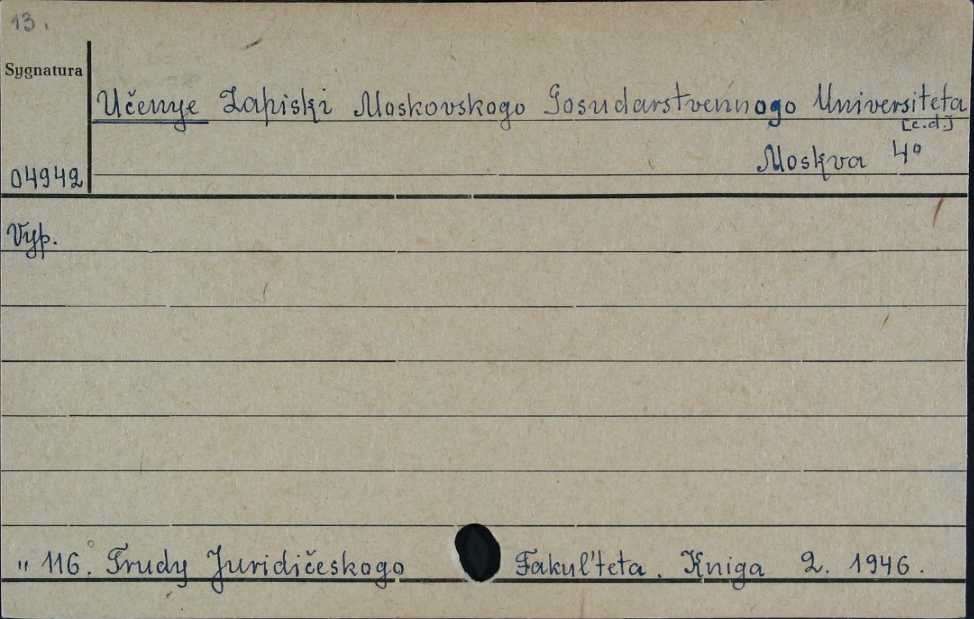 13.
Sygnatura
Učenye Zapiski Moskovskogo Gosudarstvennogo Universiteta
[c.d.]
Moskva 4°
04942
Vyp.
" 116. Trudy Juridičeskogo Fakul'teta. Kniga 2. 1946.